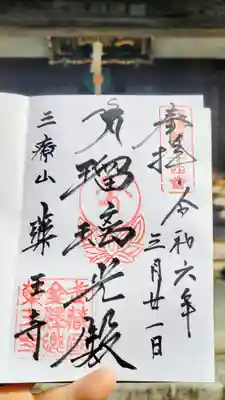 奉拝
令和六年
三月廿一日
瑠璃光殿
三療山
薬王寺